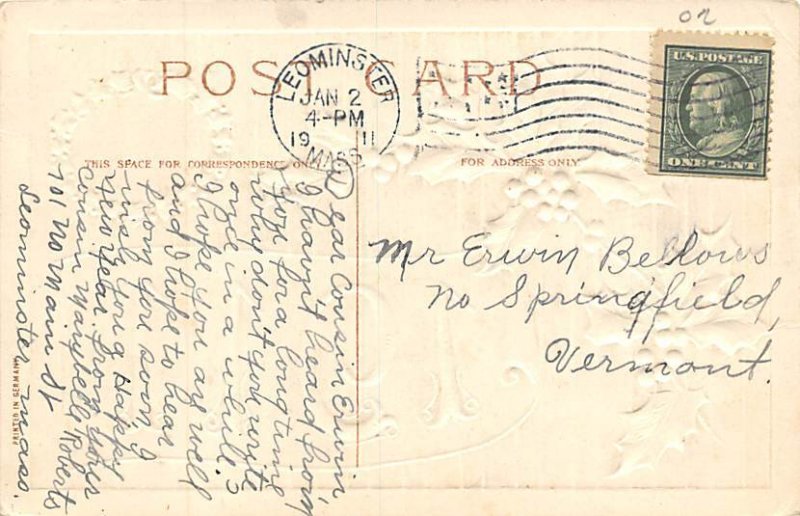 02
POST CARD
LEOMINSTER
JAN 2
4-PM
19 11
MASS.
U.S. POSTAGE
ONE CENT
THIS SPACE FOR CORRESPONDENCE ONLY
FOR ADDRESS ONLY
Mr Erwin Bellows
No Springfield,
Vermont.
Dear Cousin Erwin
I havn't heard from
you for a long time
Why don't you write
once in a while?
I hope you are well
and I hope to hear
from you soon. I
wish you a Happy
New Year. From your
cousin Marybell Roberts
701 No Main St
Leominster Mass.
PRINTED IN GERMANY